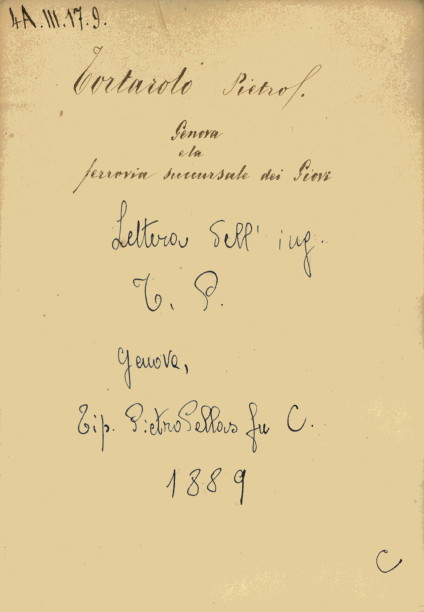 4A.III.17.9.
Tortarolo Pietro f.
Genova
e la
ferrovia succursale dei Giovi
Lettera dell' ing.
T. P.
Genova,
Tip. Pietro Pellas fu C.
1889
C